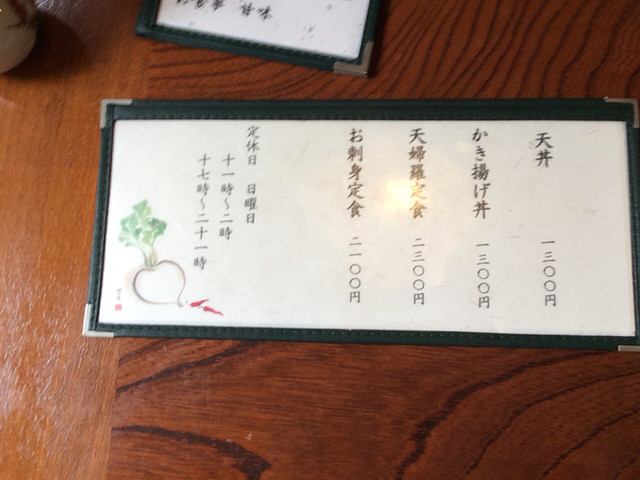 天丼 一三〇〇円
かき揚げ丼 一三〇〇円
天婦羅定食 二三〇〇円
お刺身定食 二一〇〇円
定休日 日曜日
十一時〜二時
十七時〜二十一時